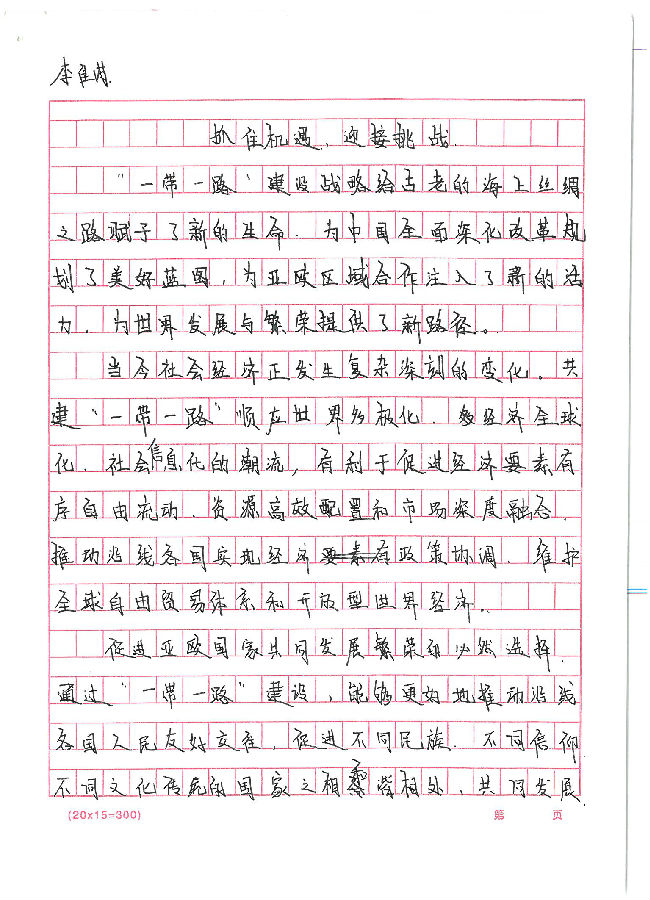 抓住机遇,迎接挑战.
"一带一路"建设战略给古老的海上丝绸
之路赋予了新的生命.为中国全面深化改革规
划了美好蓝图,为亚欧区域合作注入了新的活
力.为世界发展与繁荣提供了新路径。
当今社会经济正发生复杂深刻的变化.共
建"一带一路"顺应世界多极化.经济全球
化.社会信息化的潮流,有利于促进经济要素有
序自由流动.资源高效配置和市场深度融合.
推动沿线各国实现经济政策协调.维护
全球自由贸易体系和开放型世界经济.
促进亚欧国家共同发展繁荣的必然选择.
通过"一带一路"建设,能够更好地推动沿线
各国人民友好交往,促进不同民族.不同信仰
不同文化传统的国家之相处,共同发展
(20x15=300) 第 页